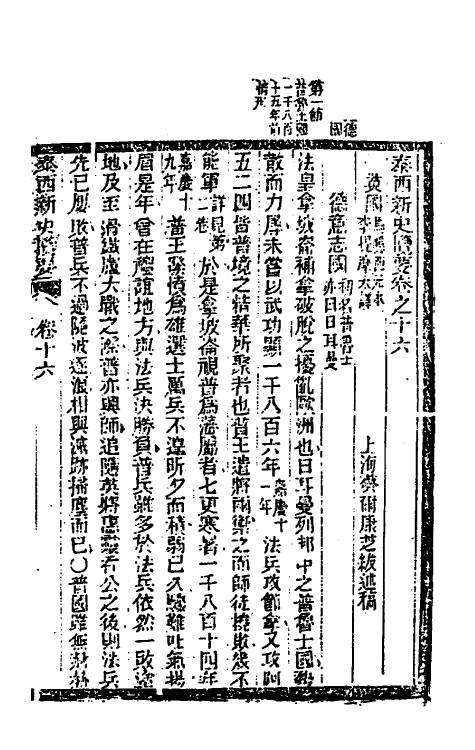 泰西新史攬要卷之十六
英國馬懇西元本
李提摩太譯
上海蔡爾康芝紱述稿
德意志國
初名普魯士
亦曰日耳曼
德國
第一節
普魯士國
一千八百
十五年前
情形
法皇拿坡崙補拿破脫之擾亂歐洲也日耳曼列邦中之普魯士國勢
散而力厚未嘗以武功顯一千八百六年
嘉慶十
一年
法兵攻節拿又攻阿
五二四皆普境之精華所聚者也普王遣將兩禦之而師徒撓敗幾不
能軍
詳見第
二卷
於是拿坡崙視普為藩屬者七更寒暑一千八百十四年
嘉慶十
九年
普王發憤為雄選士厲兵不遑昕夕而積弱已久驟難吐氣揚
眉是年曾在 地方與法兵決勝負普兵雖多於法兵依然一敗塗
地及至滑鐵盧大戰之際普亦興師追隨英將惠靈吞公之後則法兵
先已屢敗普兵不過隨波逐浪相與滅跡掃塵而已○普國雖無赫赫
泰西新史攬要
卷十六